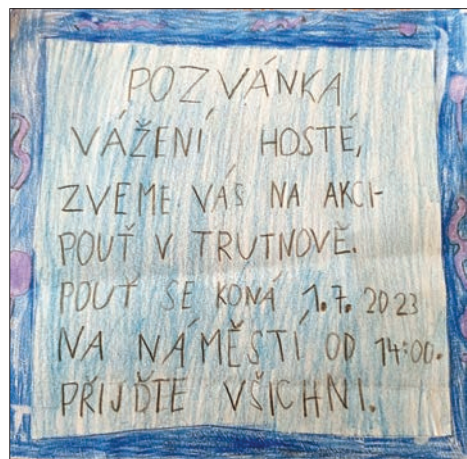 POZVÁNKA
VÁŽENÍ HOSTÉ,
ZVEME VÁS NA AKCI-
POUŤ V TRUTNOVĚ.
POUŤ SE KONÁ 1.7. 2023
NA NÁMĚSTÍ OD 14:00.
PŘIJĎTE VŠICHNI.